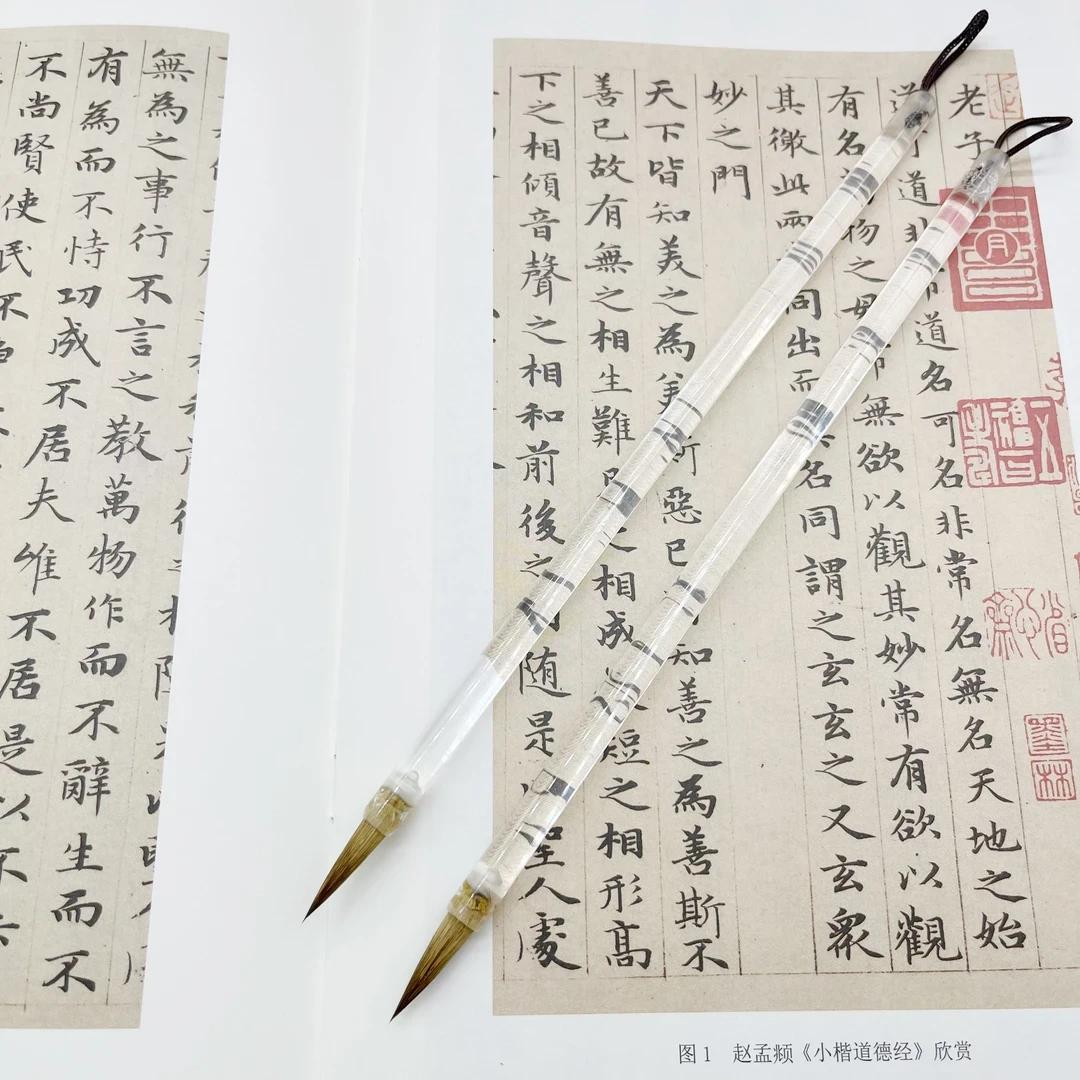 老子
道道非常道名可名非常名無名天地之始
有名物之母常無欲以觀其妙常有欲以觀
其徼此兩同出而名同謂之玄玄之又玄衆
妙之門
天下皆知美之為美惡已知善之為善斯不
善已故有無之相生難之相成短之相形高
下之相傾音聲之相和前後之随是聖人處
無為之事行不言之教萬物作而不辭生而不
有為而不恃功成不居夫唯不居是以不去
不尚賢使民不
墨林
图1 赵孟頫《小楷道德经》欣赏